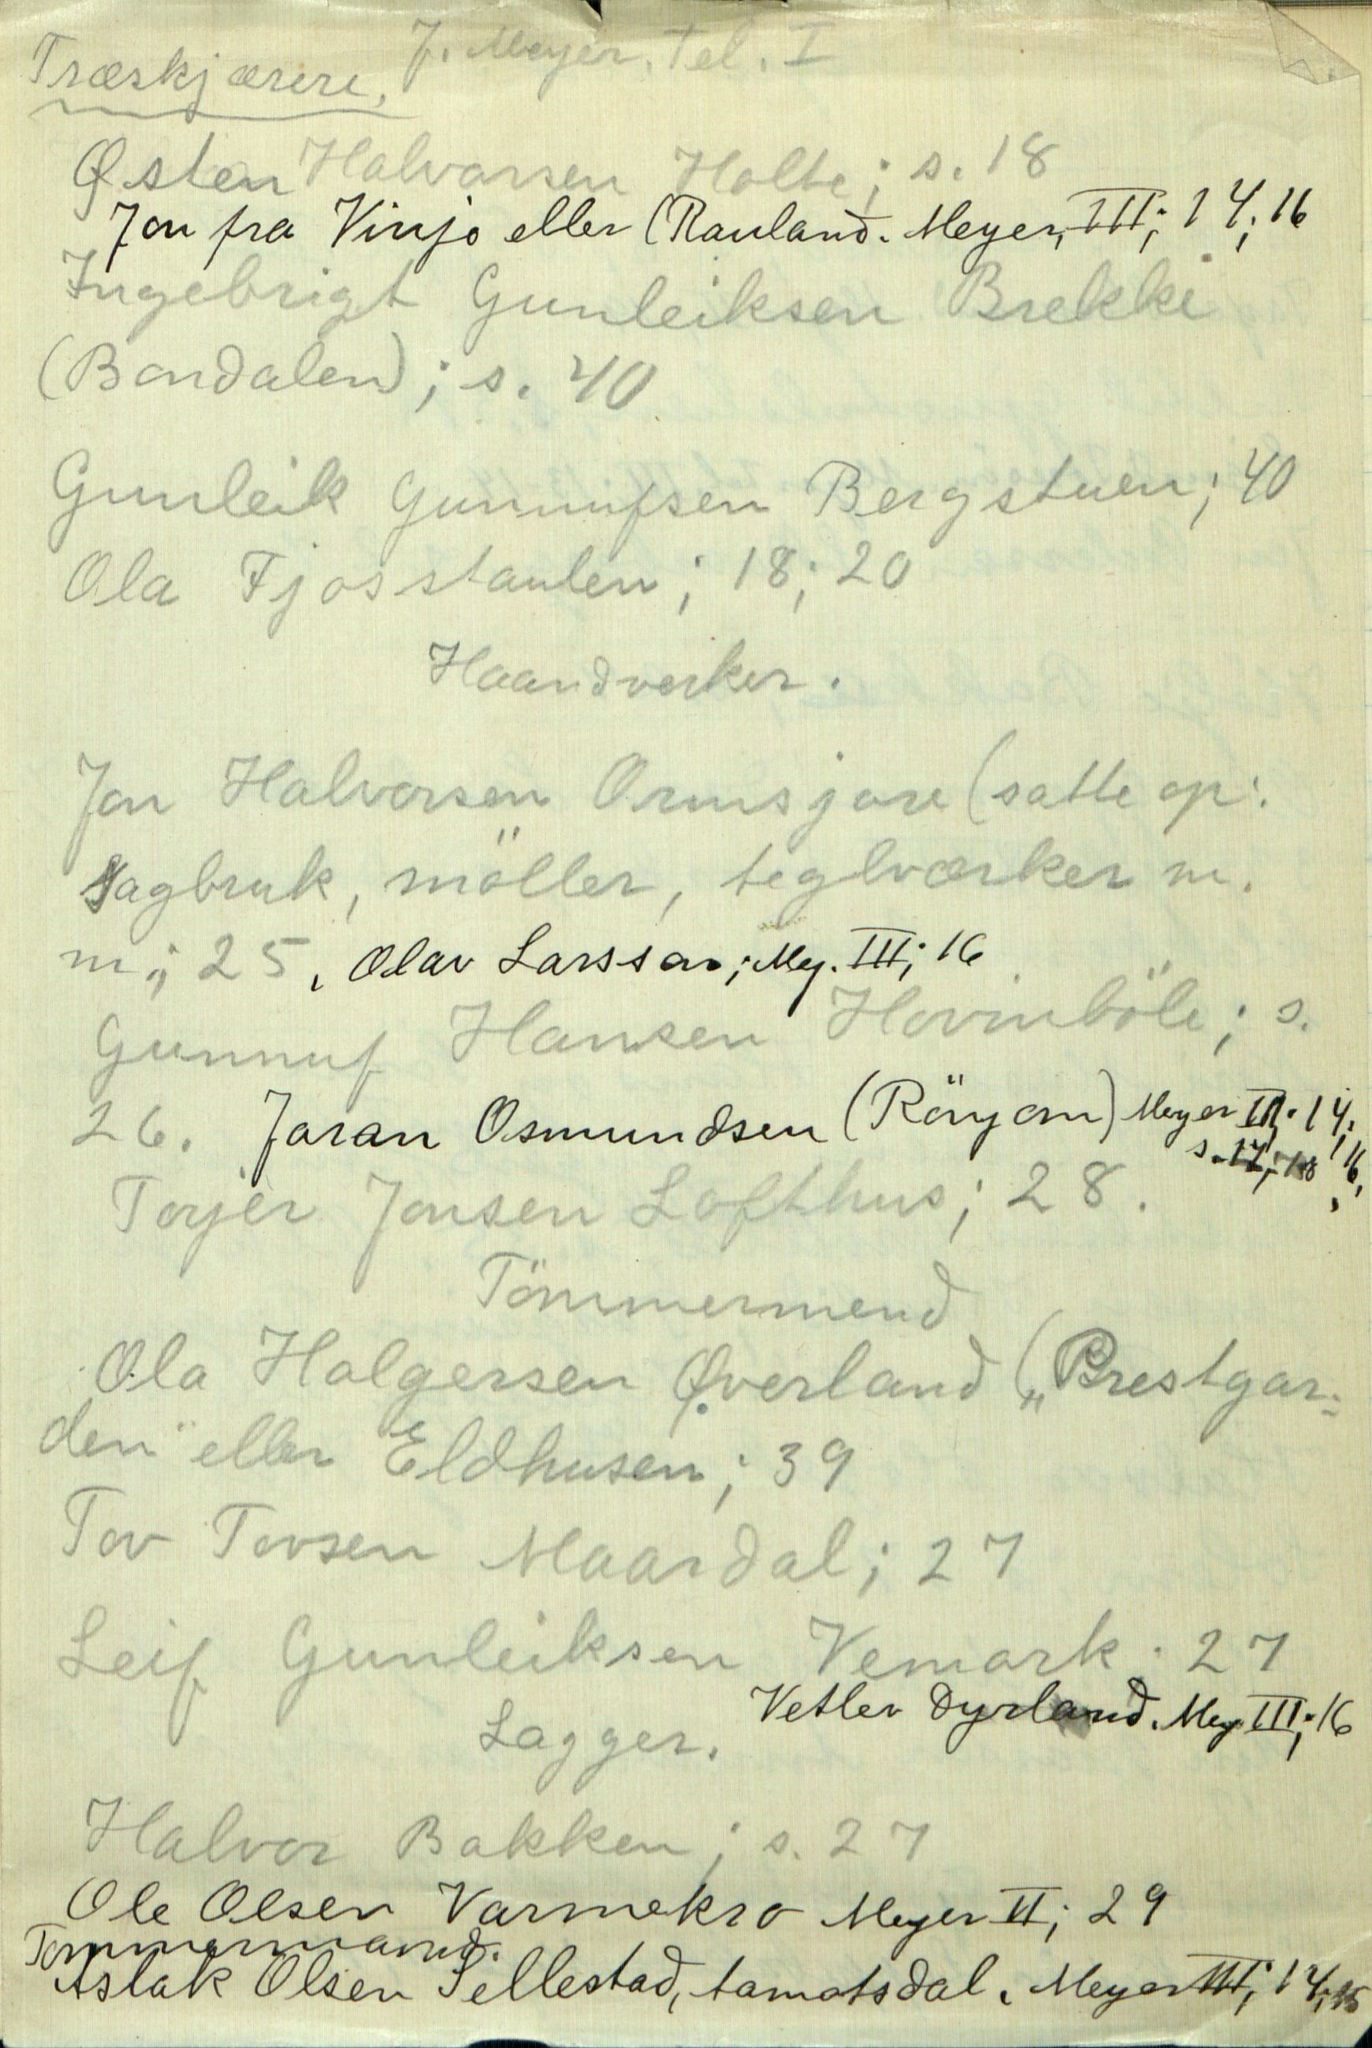 J. Meyer. Tel. I
Træskjærere.
Østen Halvarsen Holte; s. 18
Jon fra Vinjo eller (Rauland. Meyer, III; 14; 16
Ingebrigt Gunleiksen Brekke
(Bondalen); s. 40
Gunleik Gunnufsen Bergstuen; 40
Ola Fjosstaulen; 18; 20
Haandverker.
Jon Halvorsen Ormsjore (satte op:
Sagbruk, möller, teglværker m.
m; 25, Olav Larsson; Mey. III; 16
Gunnuf Hansen Hovinböle; s.
26. Joran Osmundsen (Rönjom) Meyer III. 14; 16,
s. 17; 18
Torjer Jonsen Lofthus; 28.
Tömmermend
Ola Holgersen Øverland („Prestgar-
den" eller Eldhusen; 39
Tov Tovsen Maardal; 27
Leif Gunleiksen Vemork. 27
Vetlev Dyrland. Mey III; 16
Lagger.
Halvor Bakken; s. 27
Ole Olsen Varmekro Meyer II; 29
Tømmermand.
Aslak Olsen Sellestad, tamotsdal. Meyer III; 14;